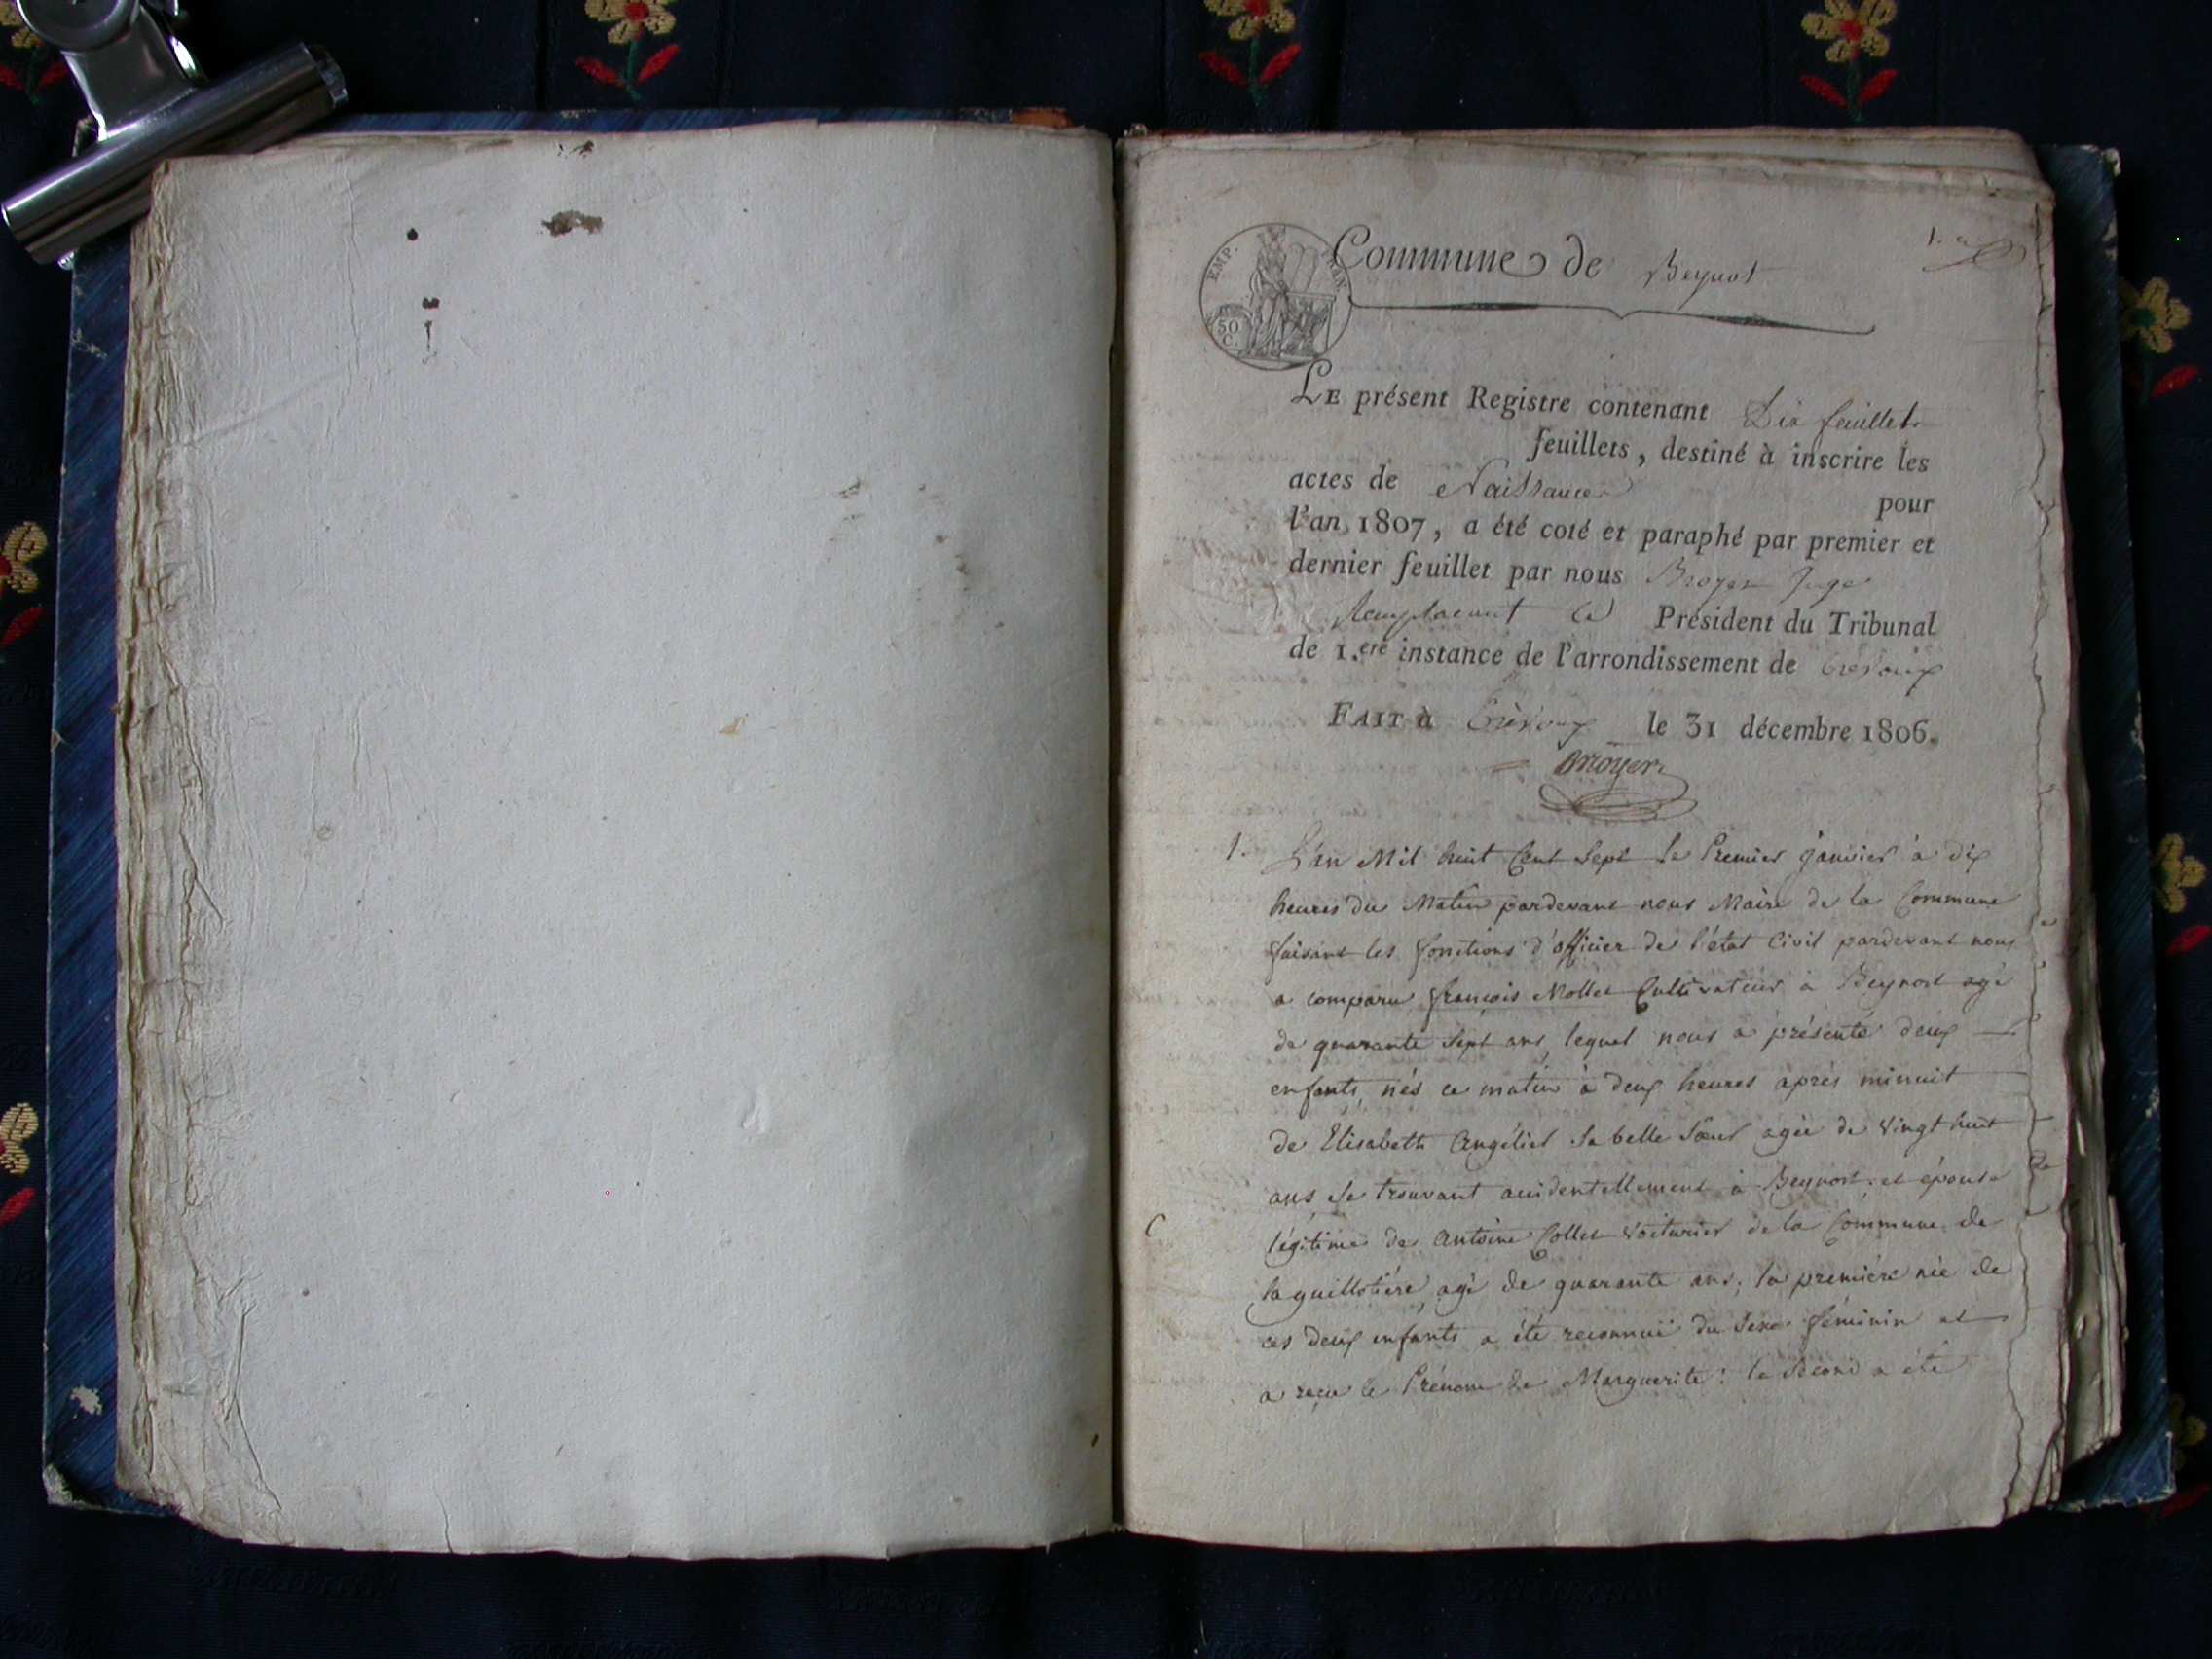 EMP.
50
C.
Commune de Beynost
1.er
LE présent Registre contenant Dix feuillets
feuillets, destiné à inscrire les
actes de Naissances pour
l'an 1807, a été coté et paraphé par premier et
dernier feuillet par nous Broyer Juge
Remplacant le Président du Tribunal
de 1.ere instance de l'arrondissement de Trévoux
FAIT à Trévoux le 31 décembre 1806.
Broyer
1. L'an Mil huit Cent Sept le Premier janvier à dix
heures du Matin pardevant nous Maire de la Commune
faisant les fonctions d'officier de l'état Civil pardevant nous
a comparu françois Mollet Cultivateur à Beynost agé
de quarante Sept ans, lequel nous a présenté deux
enfants, nés ce matin à deux heures après minuit
de Elisabeth Angéliet sa belle Sœur agée de vingt huit
ans, se trouvant accidentellement à Beynost, et épouse
légitime de Antoine Collet Voiturier de la Commune de
la guillotière, agé de quarante ans; la première née de
ces deux enfants a été reconnuë du Sexe féminin et
a reçu le Prénom de Marguerite: le Second a été